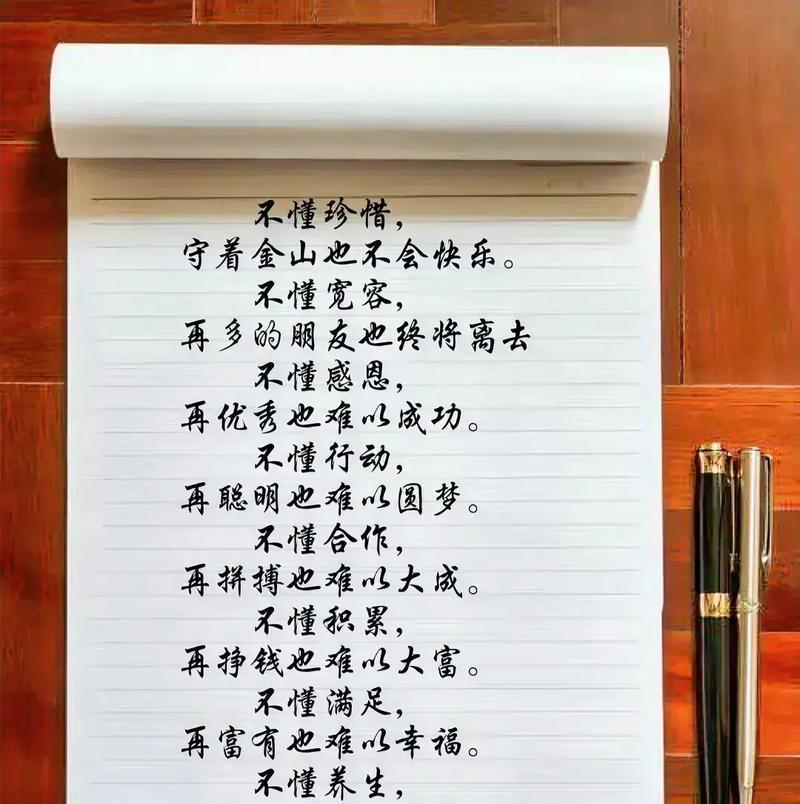 不懂珍惜,
守着金山也不会快乐。
不懂宽容,
再多的朋友也终将离去
不懂感恩,
再优秀也难以成功。
不懂行动,
再聪明也难以圆梦。
不懂合作,
再拼搏也难以大成。
不懂积累,
再挣钱也难以大富。
不懂满足,
再富有也难以幸福。
不懂养生,